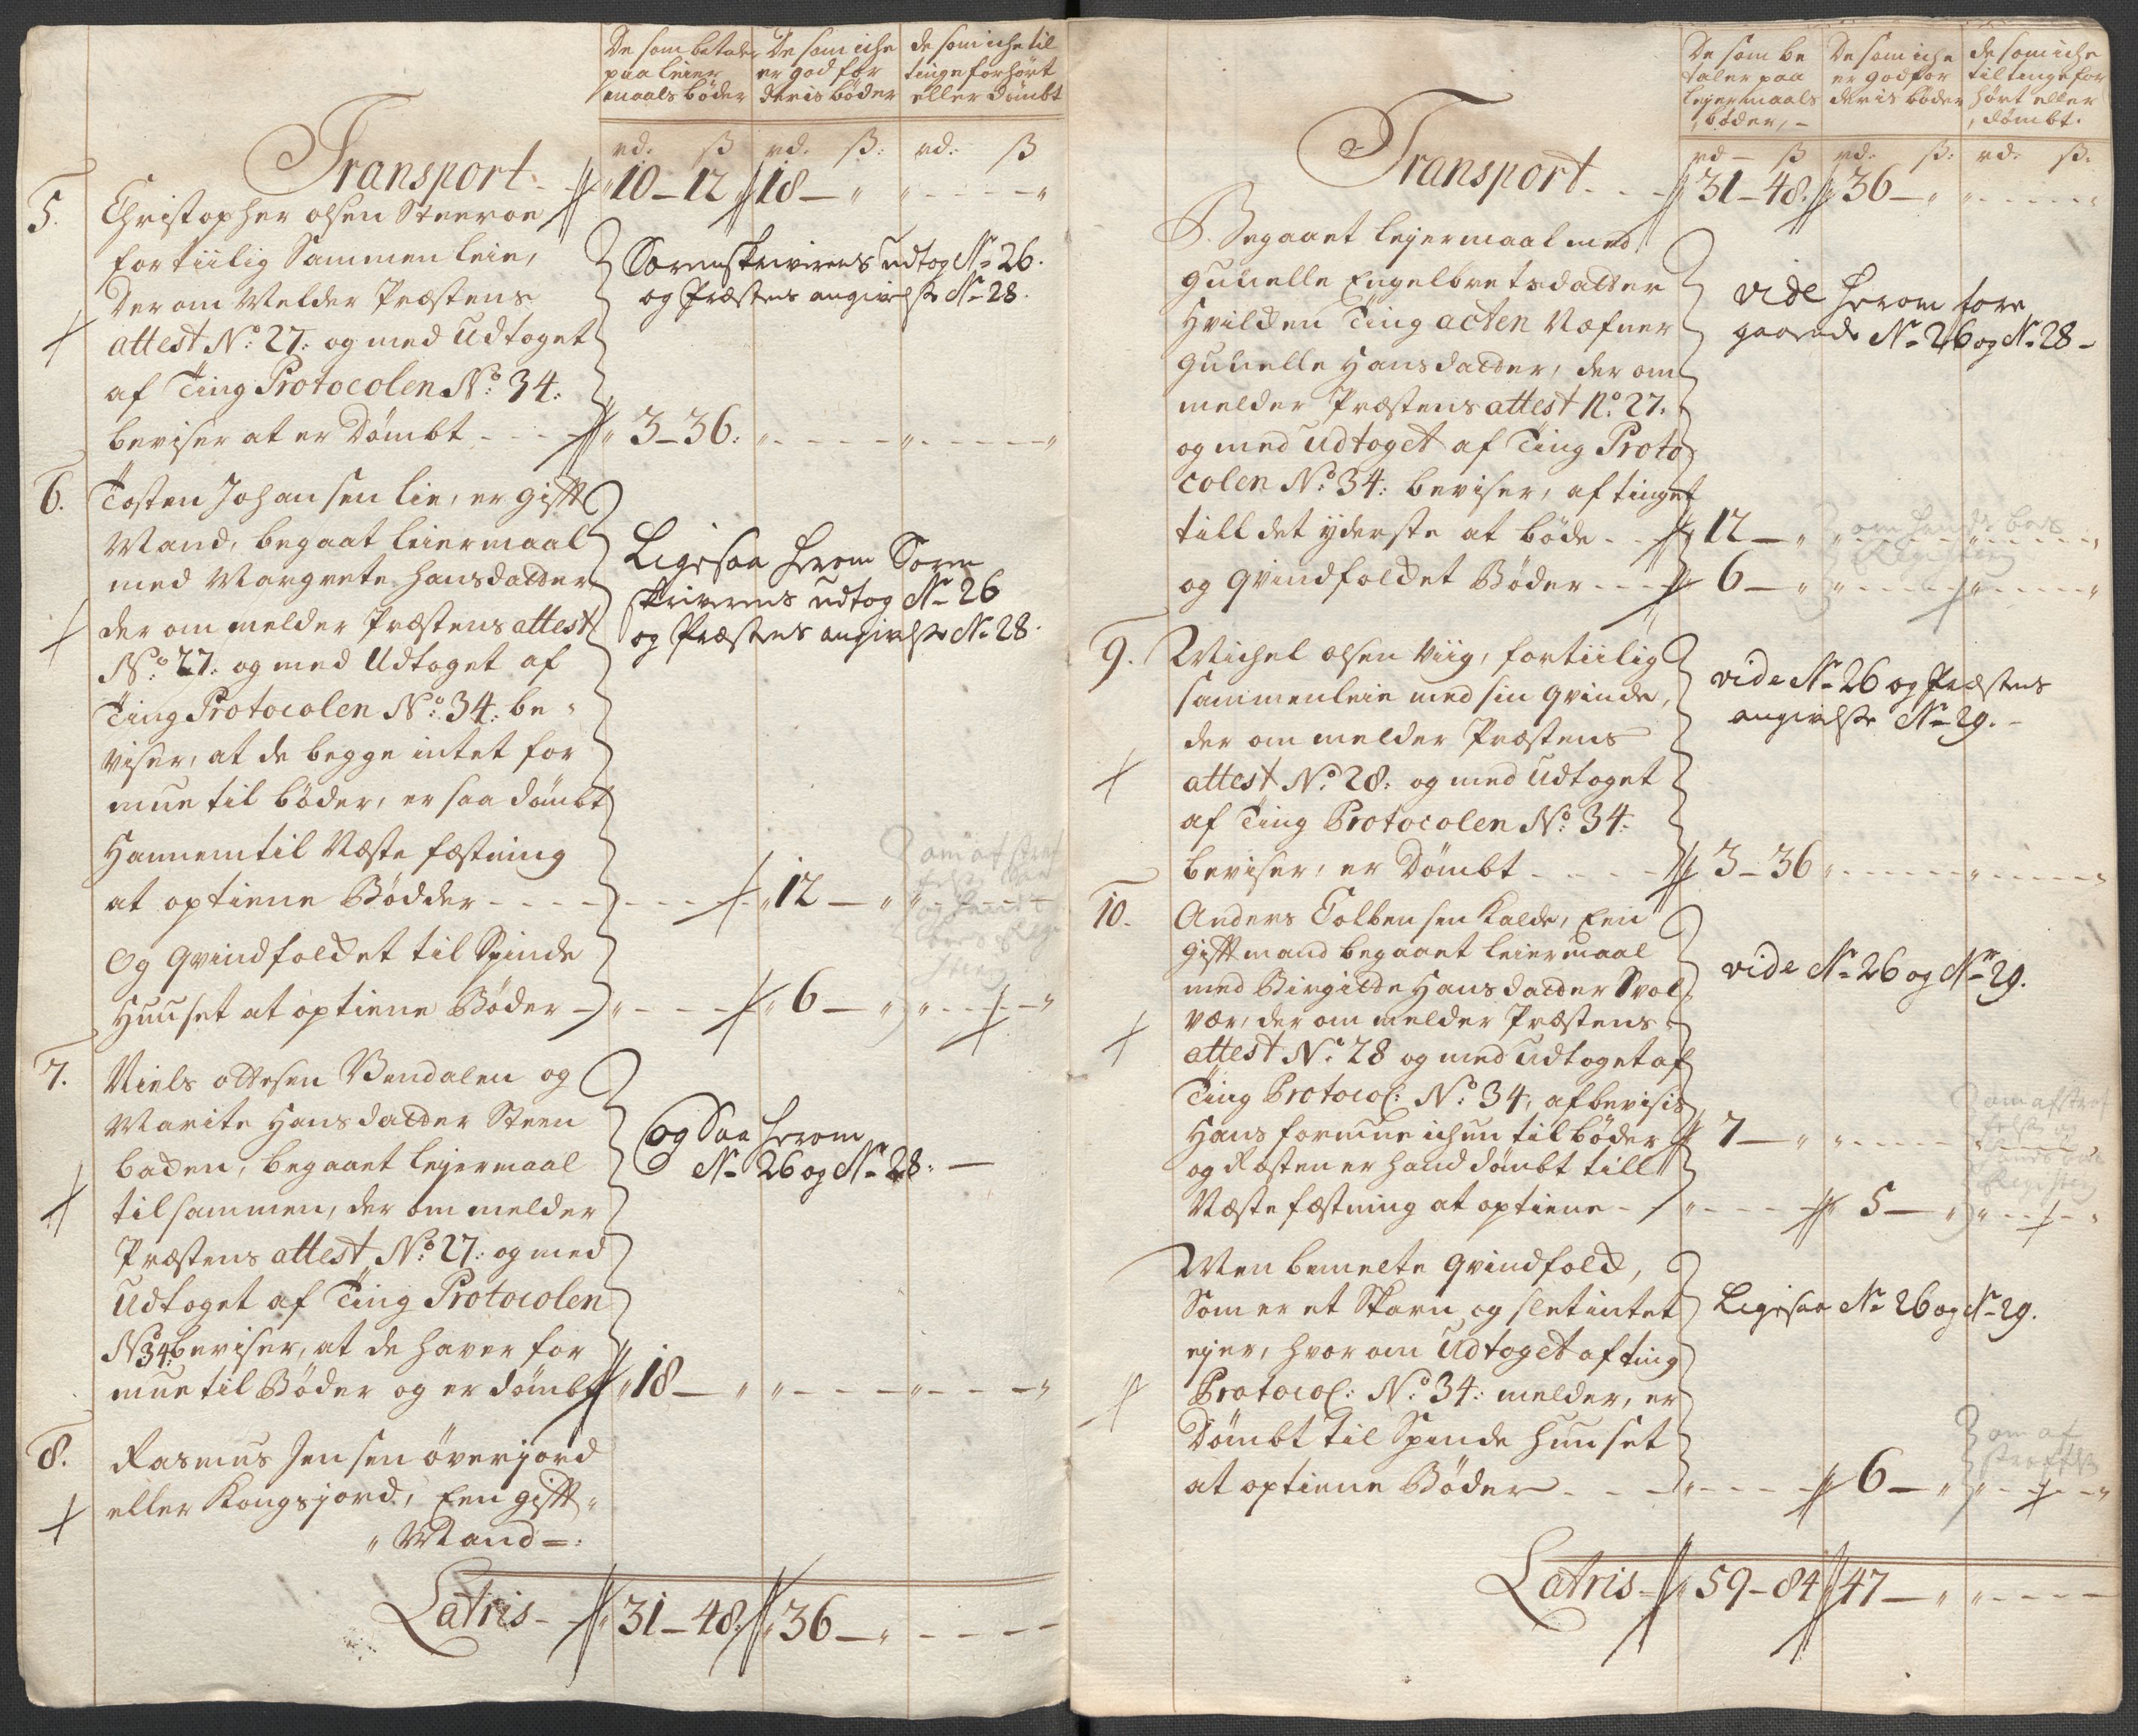 De som betaler
paa leier
maals bøder
De som iche
er god for
deris bøder
de som iche til
tinge forhört
eller dömbt
rd. ß rd. ß: rd: ß
Transport - 10 - 12 18 - " " - - - "
5. Christopher olsen Steeroe
for tiilig Sammen leie,
Der om Melder Præstens
attest No: 27: og med Udtoget
af Ting Protocolen No: 34:
beviser at er Dömbt - - - 3 - 36: " - - - " - - - "
Sorenskriverens udtog No 26.
og Præstens angivelse No 28.
6. Tosten Johansen lie, er gifft
Mand, begaat leiermaal
med Margrete Hansdatter
der om melder Præstens attest
No: 27: og med Udtoget af
Ting Protocolen No: 34: be=
viser, at de begge intet for
mue til bøder, er saa dömbt
Hannem til Næste fæstning
at optiene Bødder - - - - 12 - "
Og qvindfolchet til Spinde
Huuset at optiene Bøder - 6 - " " - - - "
Ligesaa herom Soren
skriverens udtog No 26
og Præstens angivelse No 28.
om afstraf
7. Niels ottesen Bendalen og
Marite Hansdatter Steen
baden, begaaet leiermaal
tilsammen, der om melder
Præstens attest No: 27: og med
Udtoget af Ting Protocolen
No 34: beviser, at de haver for
mue til Bøder og er dömbt 18 - " " - - - " - - - "
Og Saa herom
No 26 og No 28: -
8. Rasmus Jensen överjord
eller Kongsjord, Een gifft
" Mand =:
Latris - 31 - 48 36 - " - - - -
De som be
taler paa
lejermaals
bøder, -
De som iche
er god for
deris bøder
de som iche
til tinge for
hört eller
dömbt.
rd - ß rd. ß: rd: ß:
Transport - - - 31 - 48. 36 - " " - - - "
Begaaet lejermaal med
Gunelle Engelbretsdatter
Hvilchen Ting acten Nefner
Gunelle Hansdatter, der om
melder Præstens attest No: 27.
og med udtoget af Ting Proto
colen No: 34: beviser, aftinget
till det yderste at bøde - - 12 - "
og Qvindfolchet Bøder - - - 6 - " " - - - " - - - "
vide herom fore
gaaende No 26 og No 28 -
9. Michel olsen Viig, for tiilig
sammenleie med sin qvinde,
der om melder Præstens
attest No: 28: og med Udtoget
af Ting Protocolen No: 34:
beviser, er Dömbt - - - - 3 - 36 " - - - " - - - "
vide No 26 og Præstens
angivelse No 29. -
10. Anders Tolbensen Kalde, Een
gifft mand begaaet leiermaal
med Birgitte Hansdatter Svol
vær, der om melder Præstens
attest No: 28 og med Udtoget af
Ting Protocol: No: 34, afbevisis
Hans formue ichun til bøder 7 - " " - - -
og Resten er hand dömbt till
Næste fæstning at optiene - " - - - 5 - " " - - - "
vide No 26 og No 29.
om afstraf
Men bemelte qvindfold,
Som er et Skarn og slet intet
ejer, hvor om Udtoget af ting
Protocol: No: 34: melder, er
Dömbt til Spinde Huuset
at optiene Bøder - - - " - - - 6 - " " - - - "
Ligesaa No 26 og No 29.
om af
straffelse
Latris - 59 - 84 47 - " " - - -